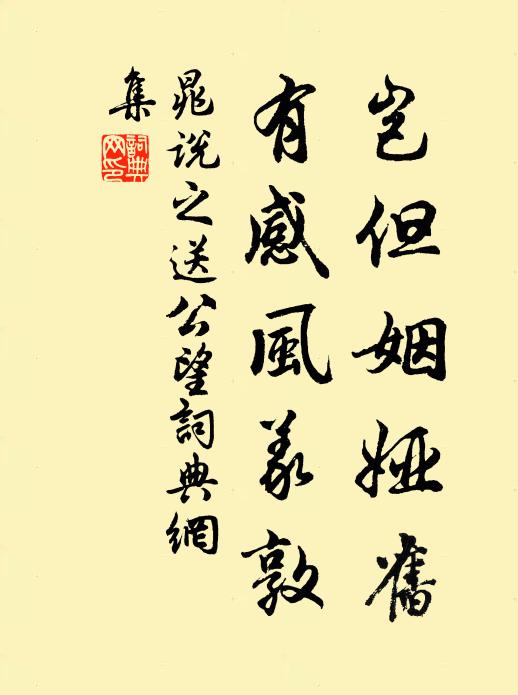 豈但姻婭舊
有感風義敦
晁說之送公望詞典網
集
詞典網印